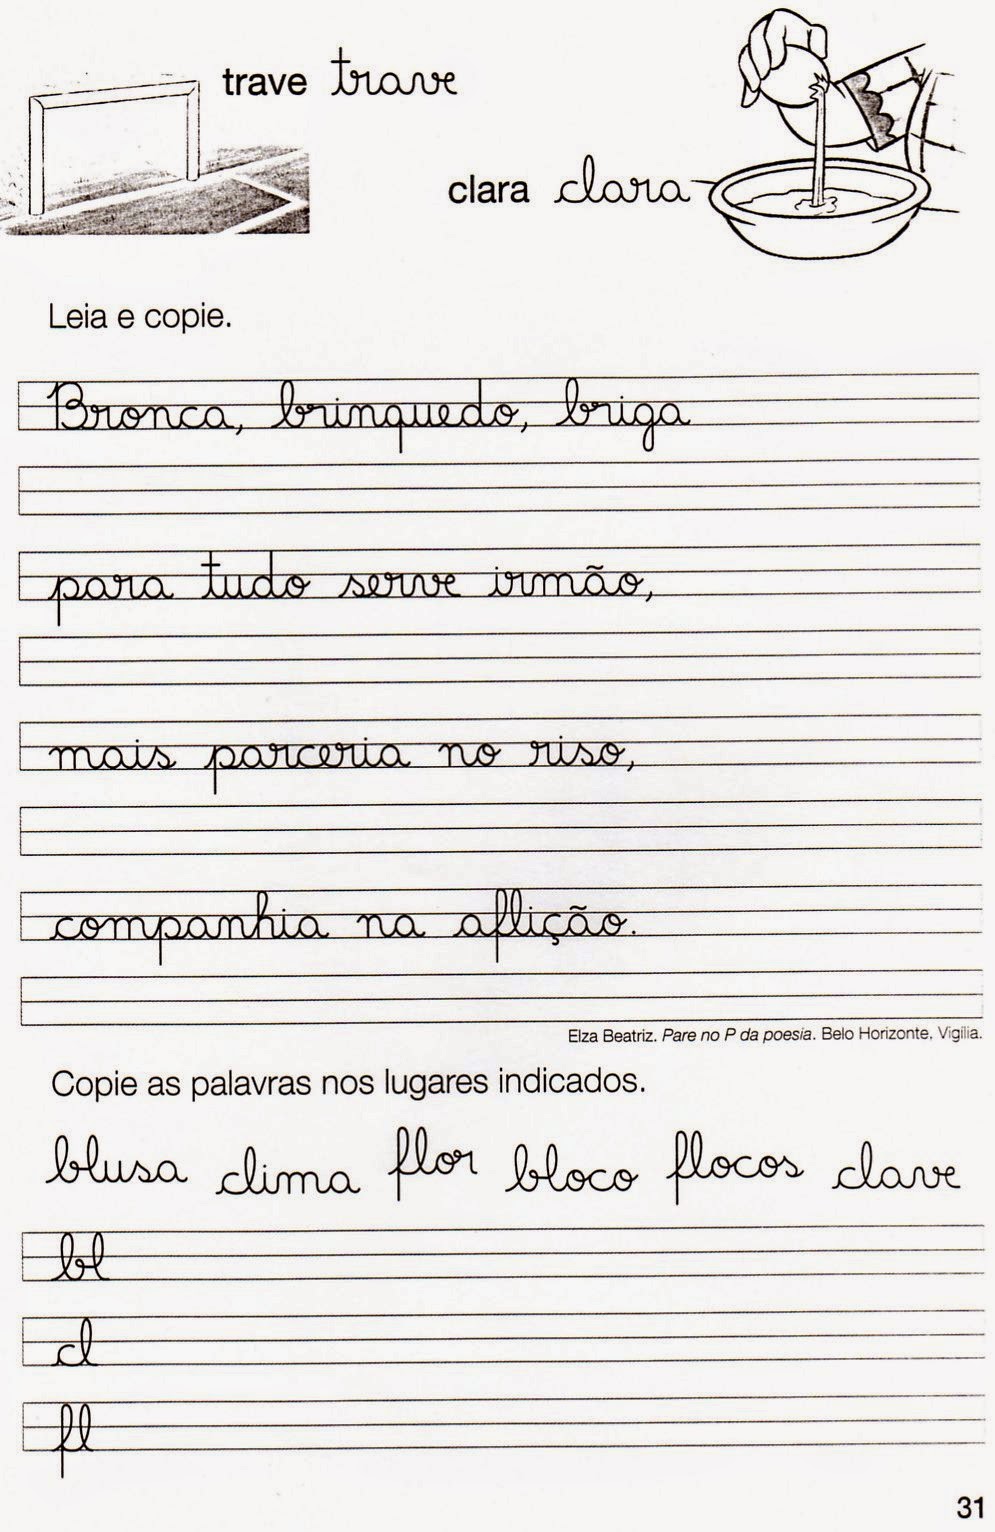 trave trave
clara clara
Leia e copie.
Bronca, brinquedo, briga
para tudo serve irmão,
mais parceria no riso,
companhia na aflição.
Elza Beatriz. Pare no P da poesia. Belo Horizonte, Vigília.
Copie as palavras nos lugares indicados.
blusa clima flor bloco flocos clave
bl
cl
fl
31